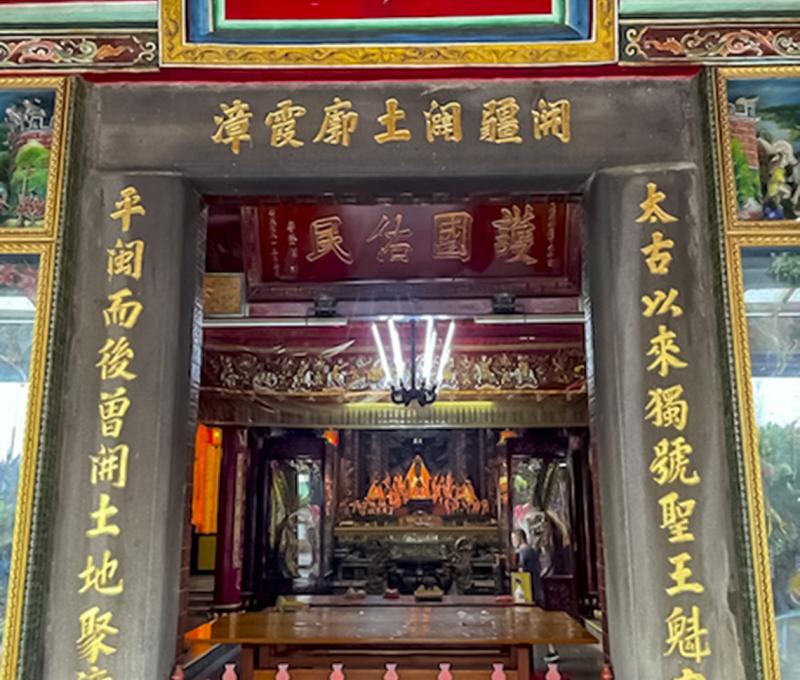 開疆闢土廓霞漳
護國佑民
太古以來獨號聖王魁
平閩而後曾開土地聚